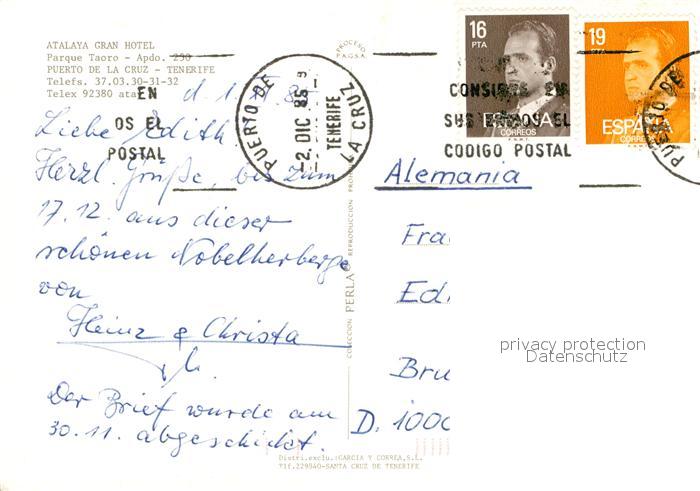 ATALAYA GRAN HOTEL
Parque Taoro - Apdo. 250
PUERTO DE LA CRUZ - TENERIFE
Telefs. 37.03.30-31-32
Telex 92380
EN
OS EL
POSTAL
PUERTO DE LA CRUZ
-2. DIC 86
TENERIFE
PROCESO
P.A.G.S.A.
16
PTA
ESPAÑA
CORREOS
F.N.M.T.
19
ESPAÑA
CORREOS
CONSIGNE EN
SUS ENVIOS EL
CODIGO POSTAL
PUERTO DE
d. 1.
Liebe Edith
Herzl. Grüße, bis zum
17.12. aus dieser
schönen Nobelherberge
von
Heinz & Christa
Der Brief wurde am
30.11. abgeschickt.
COLECCION PERLA REPRODUCCION
Alemania
Fra
Edi
Bru
D. 1000
privacy protection
Datenschutz
Distri.exclu.:GARCIA Y CORREA,S.L.
Tlf.229840-SANTA CRUZ DE TENERIFE